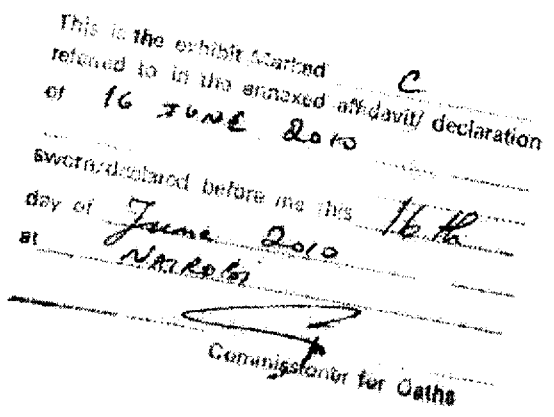 This is the exhibit Marked C
referred to in the annexed affidavit/ declaration
of 16 JUNE 2010
sworn/declared before me this 16th
day of June 2010
at NAIROBI
Commissioner for Oaths